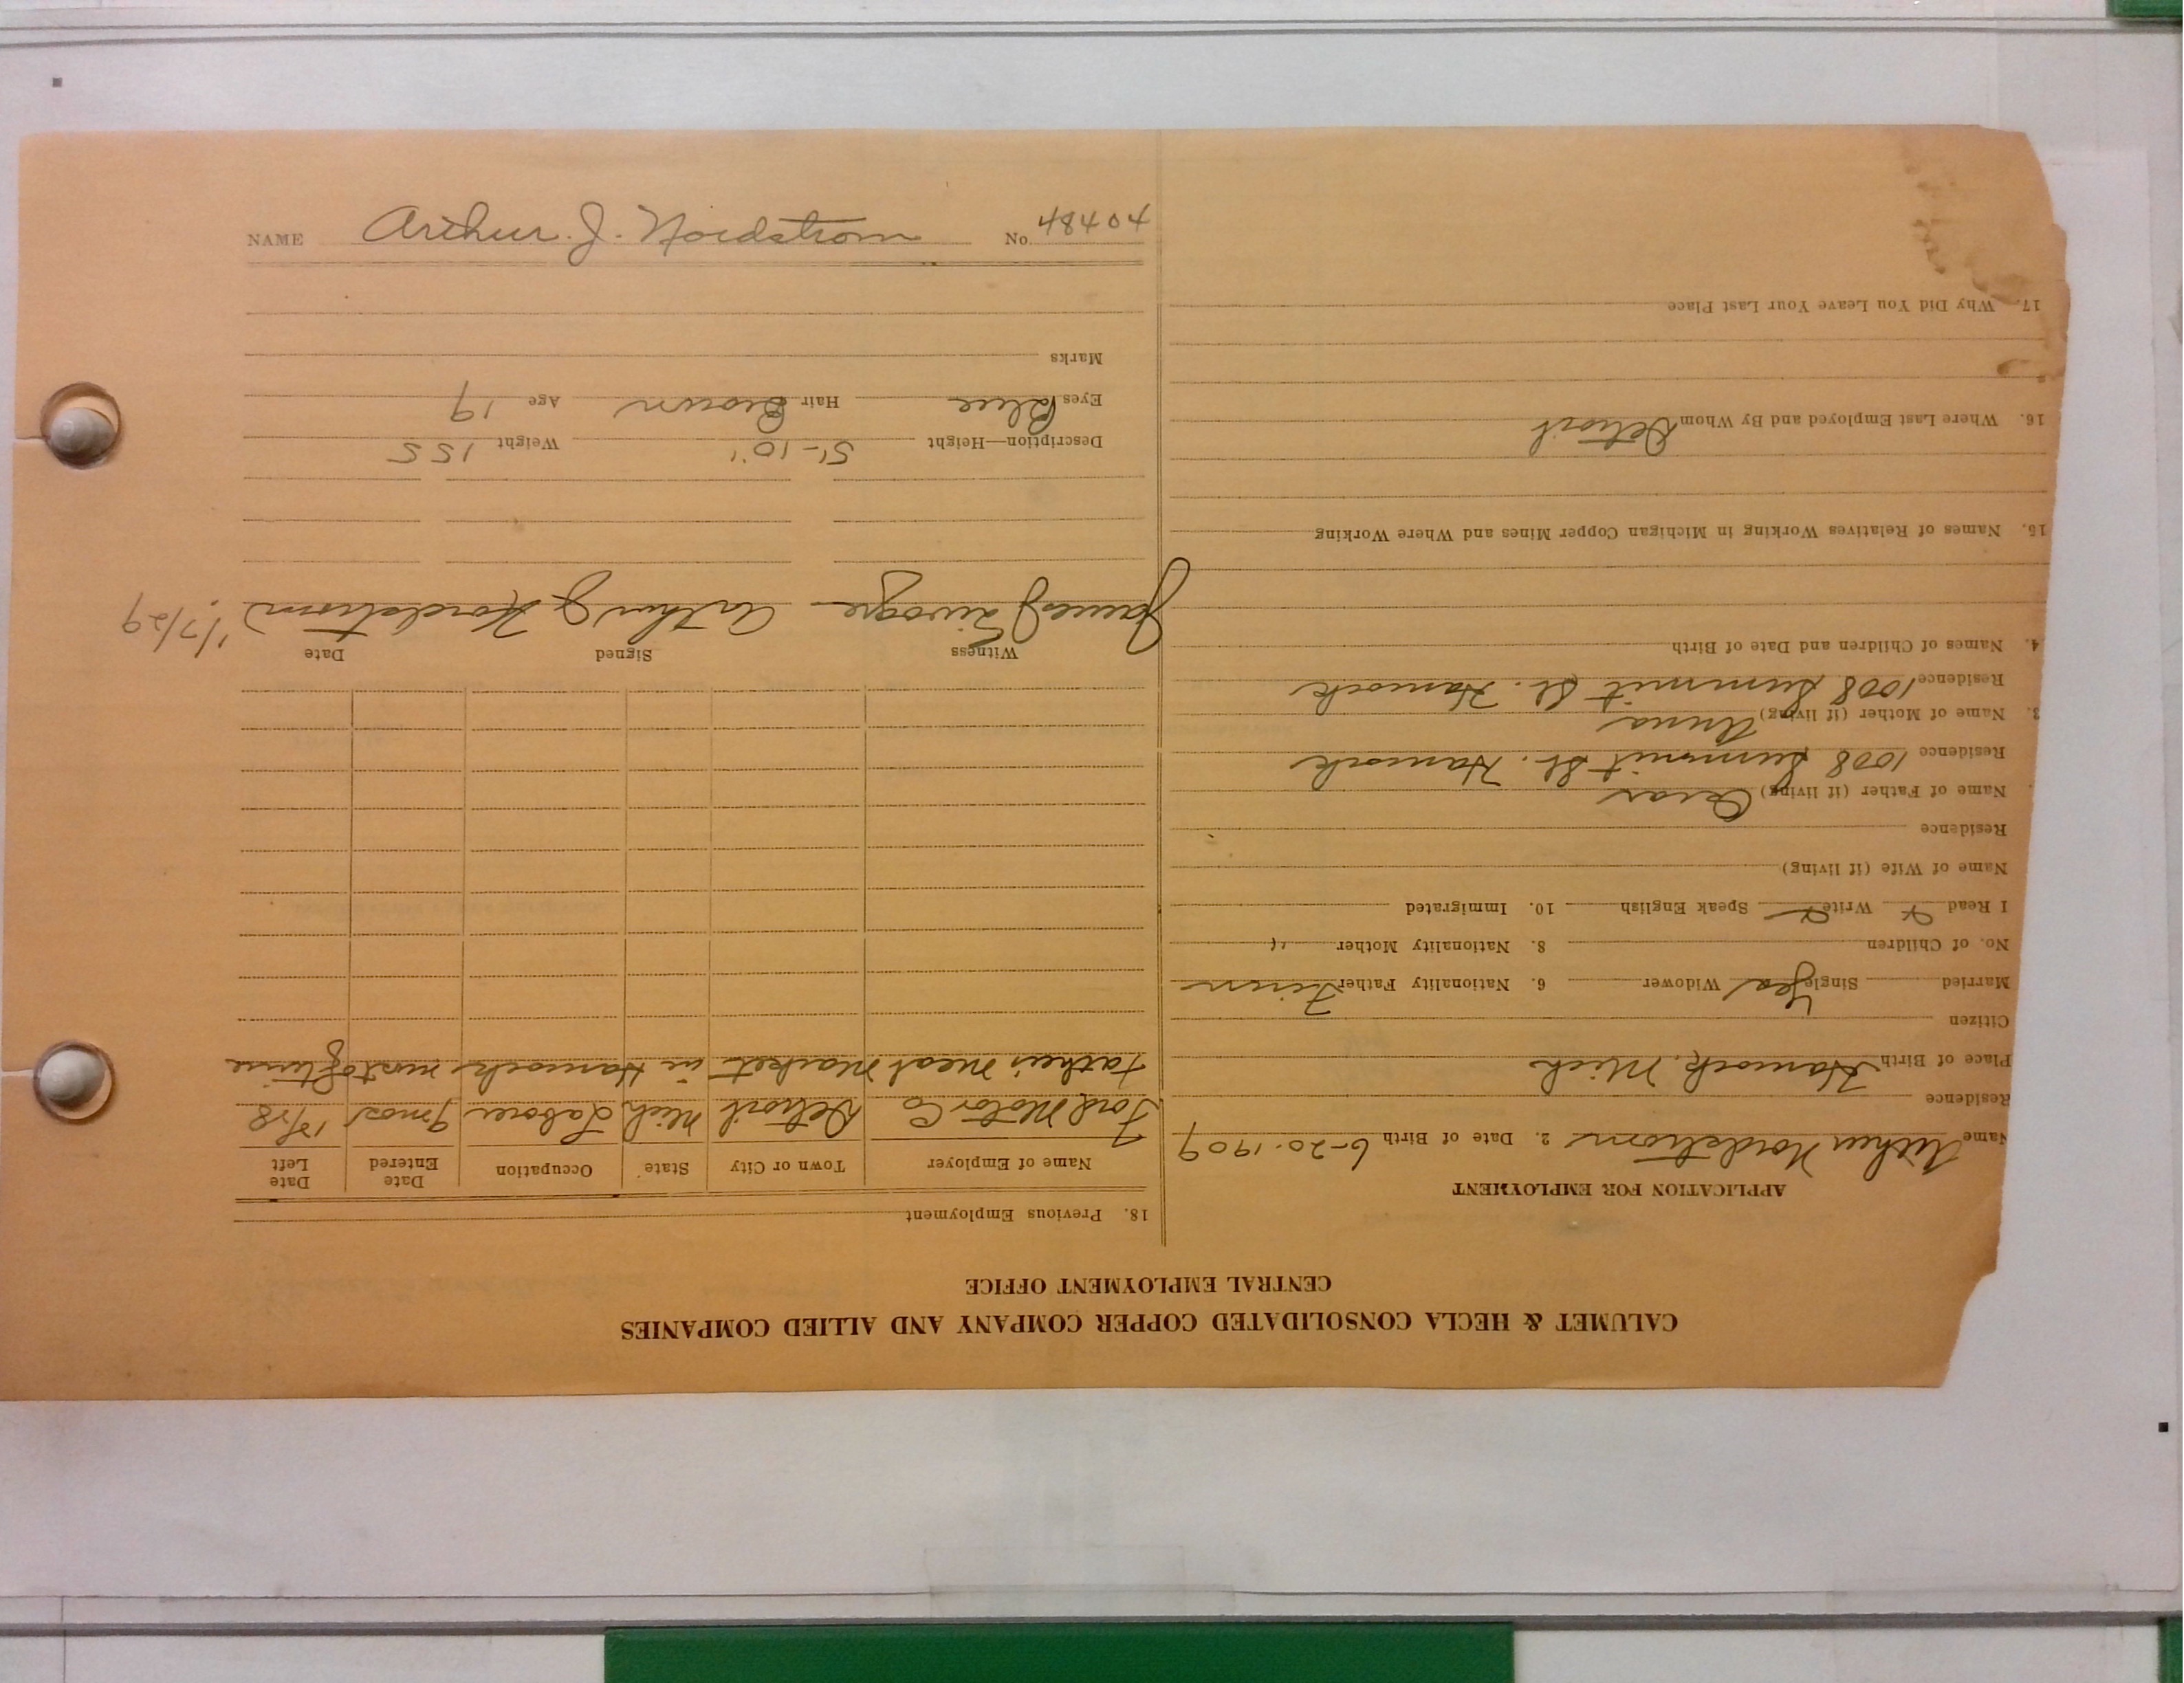 NAME Arthur. J. Nordstrom No. 48404
CALUMET & HECLA CONSOLIDATED COPPER COMPANY AND ALLIED COMPANIES
CENTRAL EMPLOYMENT OFFICE
APPLICATION FOR EMPLOYMENT
Name Arthur Nordstrom 2. Date of Birth 6-20-1909
Residence
Place of Birth Hancock, Mich
Citizen
Married Single Yes Widower 6. Nationality Father Finn
No. of Children 8. Nationality Mother "
I Read Write Speak English 10. Immigrated
Name of Wife (if living)
Residence
Name of Father (if living) Oscar
Residence 1008 Summit St. Hancock
3. Name of Mother (if living) Anna
Residence 1008 Summit St. Hancock
4. Names of Children and Date of Birth
15. Names of Relatives Working in Michigan Copper Mines and Where Working
16. Where Last Employed and By Whom Detroit
17. Why Did You Leave Your Last Place
18. Previous Employment
Name of Employer Town or City State Occupation Date Entered Date Left
Ford Motor Co Detroit Mich Laborer 9 mos 12/28
Father's Meat Market in Hancock most of time
Witness Signed Date
James Arthur J Nordstrom 1/7/29
Description—Height 5'-10" Weight 155
Eyes Blue Hair Brown Age 19
Marks